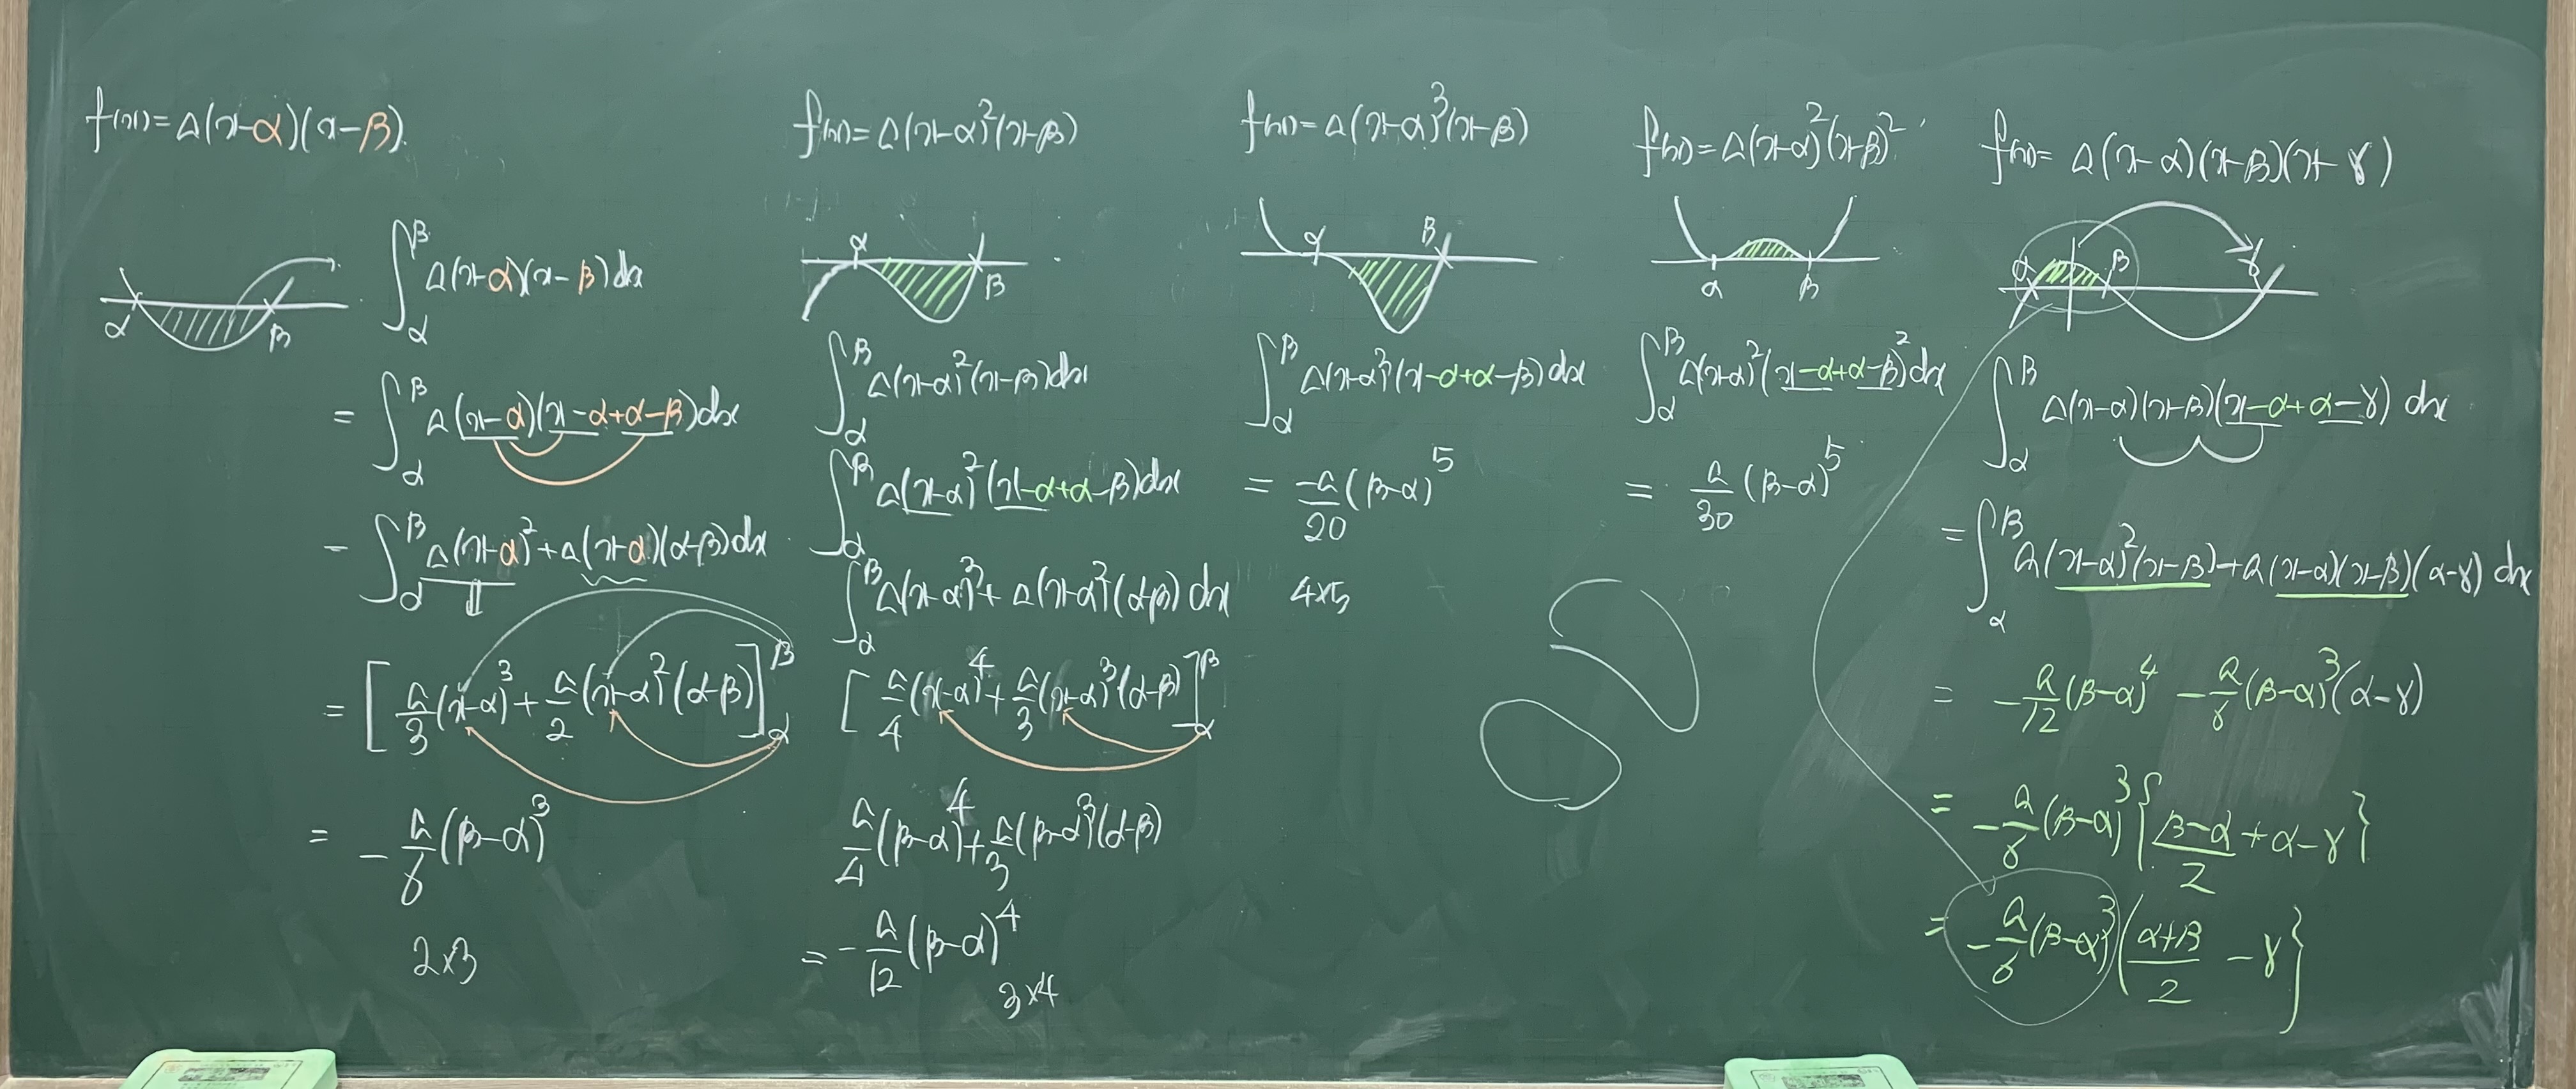 f(x)=a(x-α)(x-β).
α β
∫_α^β a(x-α)(x-β)dx
= ∫_α^β a(x-α)(x-α+α-β)dx
= ∫_α^β a(x-α)²+a(x-α)(α-β)dx
= [a/3(x-α)³+a/2(x-α)²(α-β)]_α^β
= -a/6(β-α)³
2×3
f(x)=a(x-α)²(x-β)
α β
∫_α^β a(x-α)²(x-β)dx
∫_α^β a(x-α)²(x-α+α-β)dx
∫_α^β a(x-α)³+a(x-α)²(α-β)dx
[a/4(x-α)⁴+a/3(x-α)³(α-β)]_α^β
a/4(β-α)⁴+a/3(β-α)³(α-β)
= -a/12(β-α)⁴
3×4
f(x)=a(x-α)³(x-β)
α β
∫_α^β a(x-α)³(x-α+α-β)dx
= -a/20(β-α)⁵
4×5
f(x)=a(x-α)²(x-β)²
α β
∫_α^β a(x-α)²(x-α+α-β)²dx
= a/30(β-α)⁵
f(x)=a(x-α)(x-β)(x-γ)
α β γ
∫_α^β a(x-α)(x-β)(x-α+α-γ)dx
= ∫_α^β a(x-α)²(x-β)+a(x-α)(x-β)(α-γ)dx
= -a/12(β-α)⁴-a/6(β-α)³(α-γ)
= -a/6(β-α)³{β-α/2+α-γ}
= -a/6(β-α)³(α+β/2-γ}